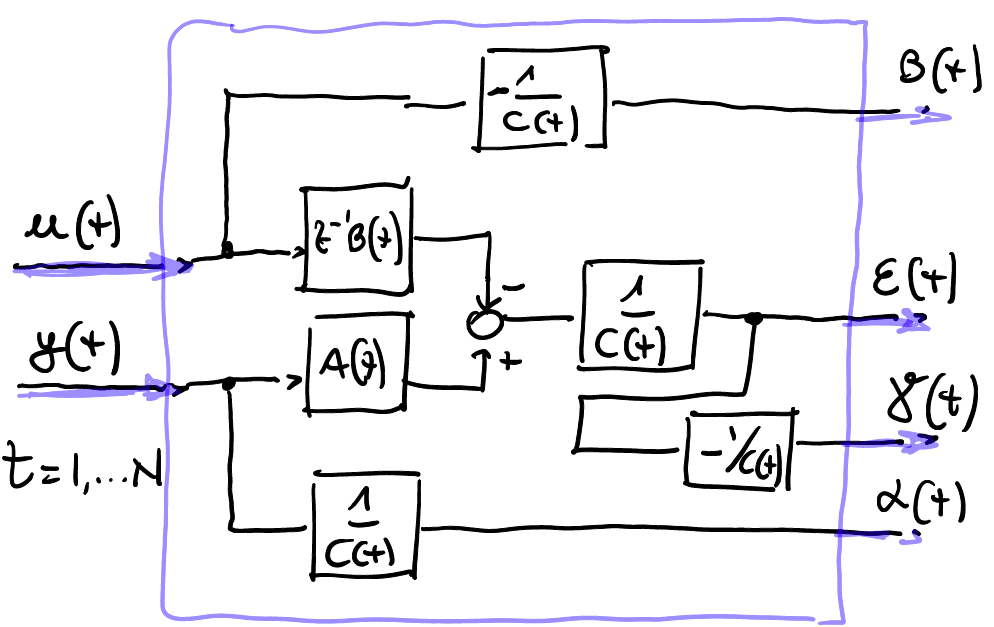 -1/C(t)
B(t)
u(t)
z⁻¹B(z)
-
1/C(t)
ε(t)
y(t)
A(z)
+
γ(t)
-1/C(t)
t=1,...N
α(t)
1/C(t)